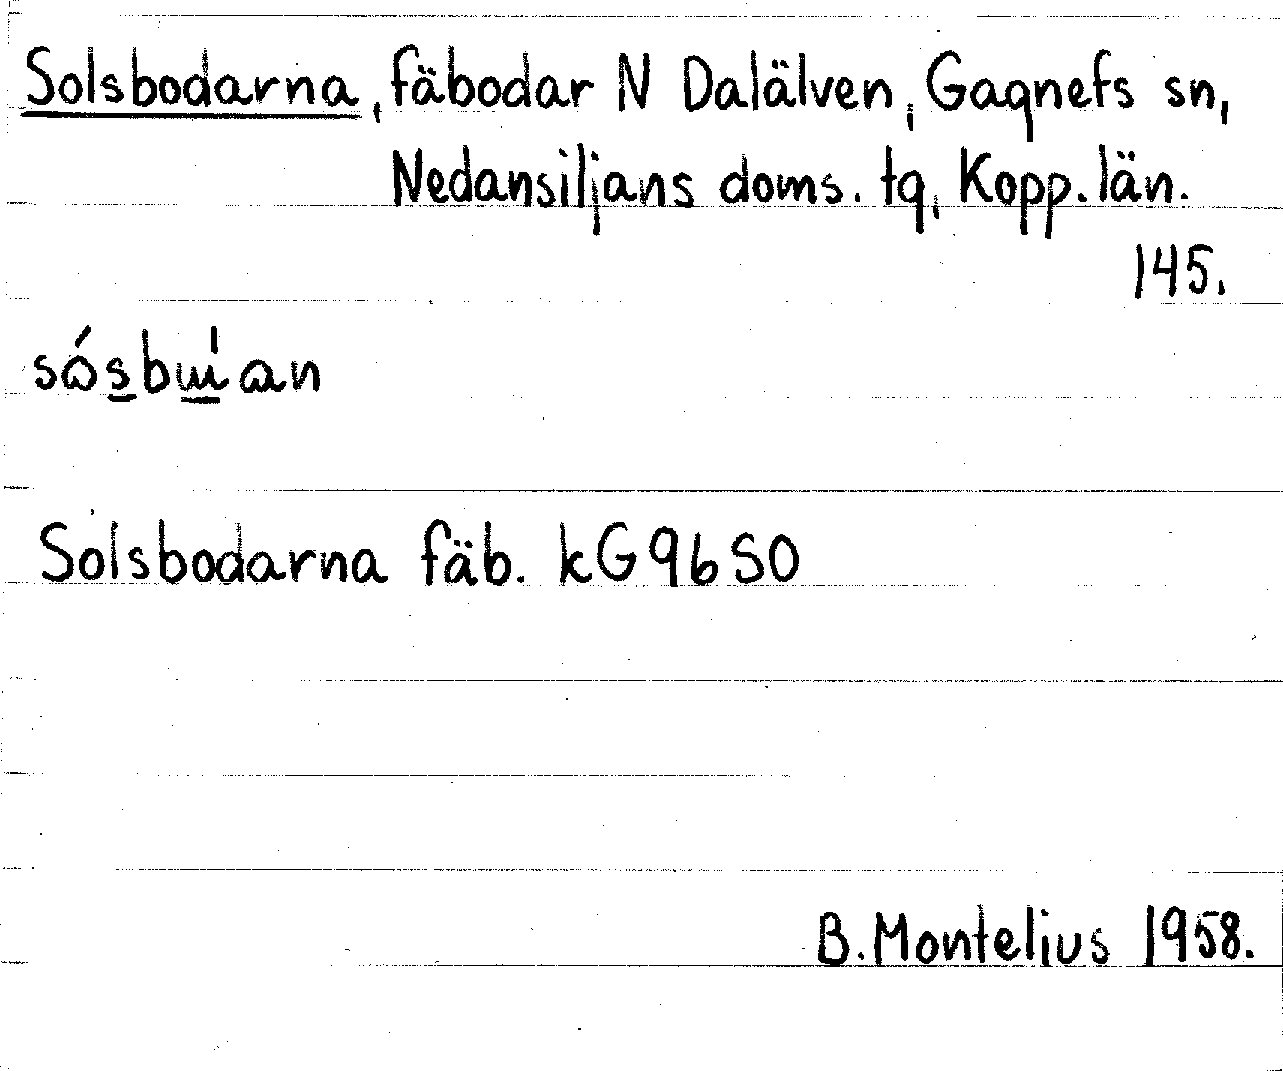 Solsbodarna, fäbodar N Dalälven, Gagnefs sn,
Nedansiljans doms. tg, Kopp. län.
145.
Solsbodarna fäb. kG96SO
B. Montelius 1958.